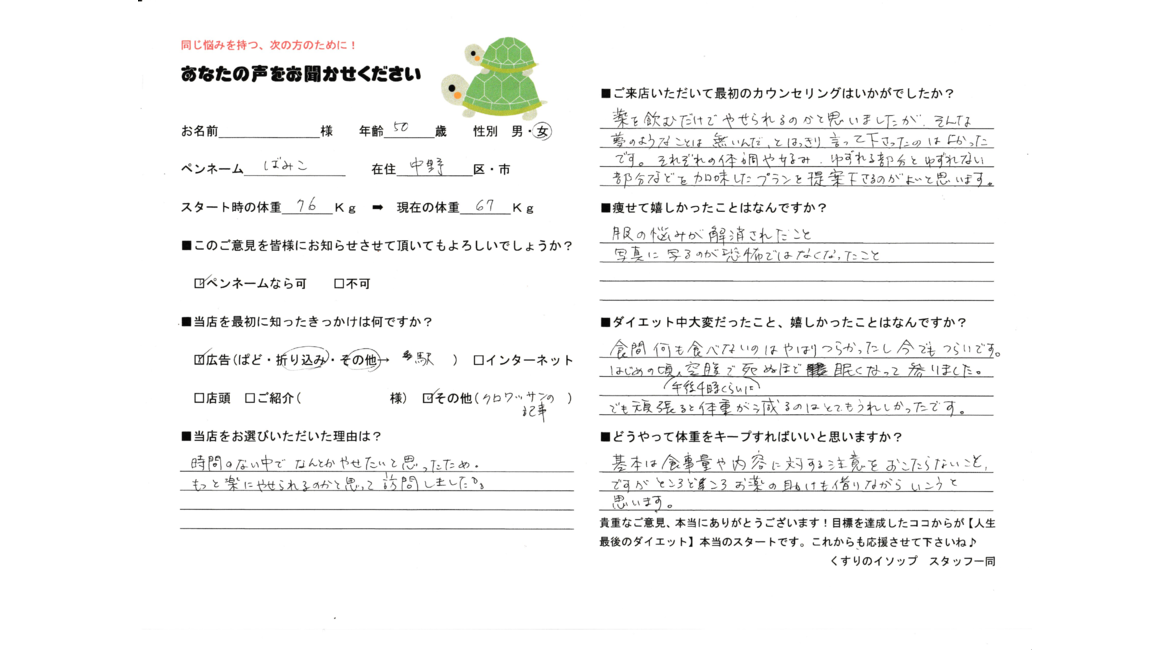 同じ悩みを持つ、次の方のために！
あなたの声をお聞かせください
お名前 様 年齢 50 歳 性別 男・女
ペンネーム ばみこ 在住 中野 区・市
スタート時の体重 76 Ｋｇ ➡ 現在の体重 67 Ｋｇ
■このご意見を皆様にお知らせさせて頂いてもよろしいでしょうか？
☑ペンネームなら可 □不可
■当店を最初に知ったきっかけは何ですか？
☑広告(ぱど・折り込み・その他→ 駅 ) □インターネット
□店頭 □ご紹介( 様) ☑その他(クロワッサンの
記事 )
■当店をお選びいただいた理由は？
時間のない中でなんとかやせたいと思ったため。
もっと楽にやせられるのかと思って訪問しました。
■ご来店いただいて最初のカウンセリングはいかがでしたか？
薬を飲むだけでやせられるのかと思いましたが、そんな
夢のようなことは無いんだ、とはっきり言って下さったのはよかった
です。それぞれの体調や好み、ゆずれる部分とゆずれない
部分などを加味したプランを提案下さるのがよいと思います。
■痩せて嬉しかったことはなんですか？
服の悩みが解消されたこと
写真に写るのが恐怖ではなくなったこと
■ダイエット中大変だったこと、嬉しかったことはなんですか？
食間何も食べないのはやはりつらかったし今でもつらいです。
はじめの頃、空腹で死ぬほど眠くなって参りました。
(午後4時くらいに)
でも頑張ると体重が減るのはとてもうれしかったです。
■どうやって体重をキープすればいいと思いますか？
基本は食事量や内容に対する注意をおこたらないこと、
ですがところどころお薬の助けも借りながらいこうと
思います。
貴重なご意見、本当にありがとうございます！目標を達成したココからが【人生
最後のダイエット】本当のスタートです。これからも応援させて下さいね♪
くすりのイソップ スタッフ一同